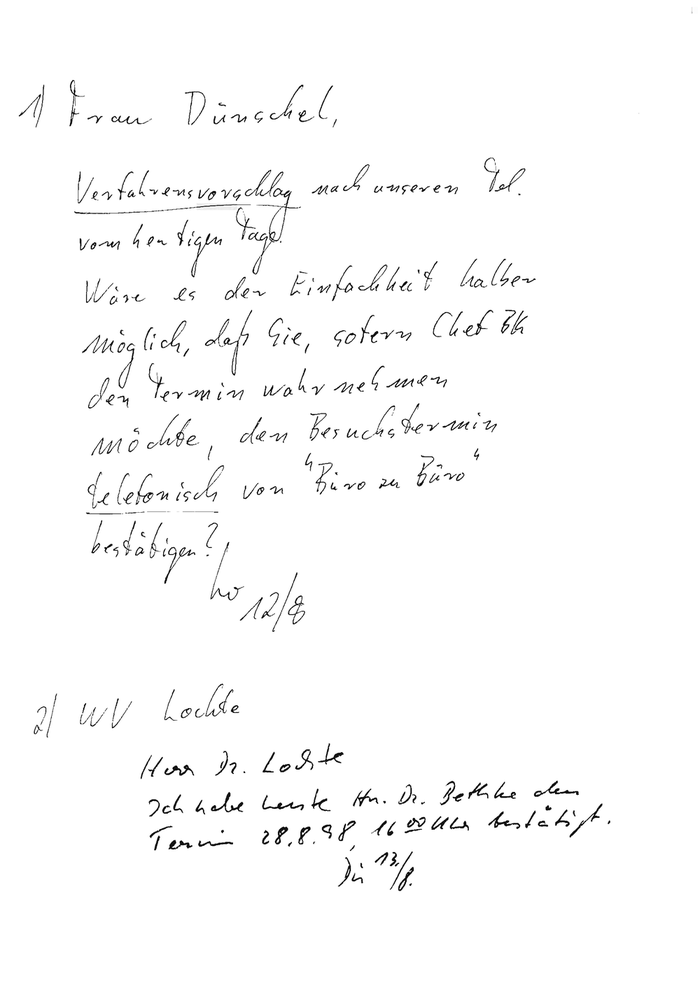 1) Frau Dünschel,
Verfahrensvorschlag nach unserem Tel.
vom heutigen Tage.
Wäre es der Einfachheit halber
möglich, daß Sie, sofern Chef BK
den Termin wahrnehmen
möchte, den Besuchstermin
telefonisch von "Büro zu Büro"
bestätigen?
Lo 12/8
2) WV Lochte
Herr Dr. Lochte
Ich habe heute Hn. Dr. Bethke den
Termin 28.8.98, 16 00 Uhr bestätigt.
Dü 13./8.